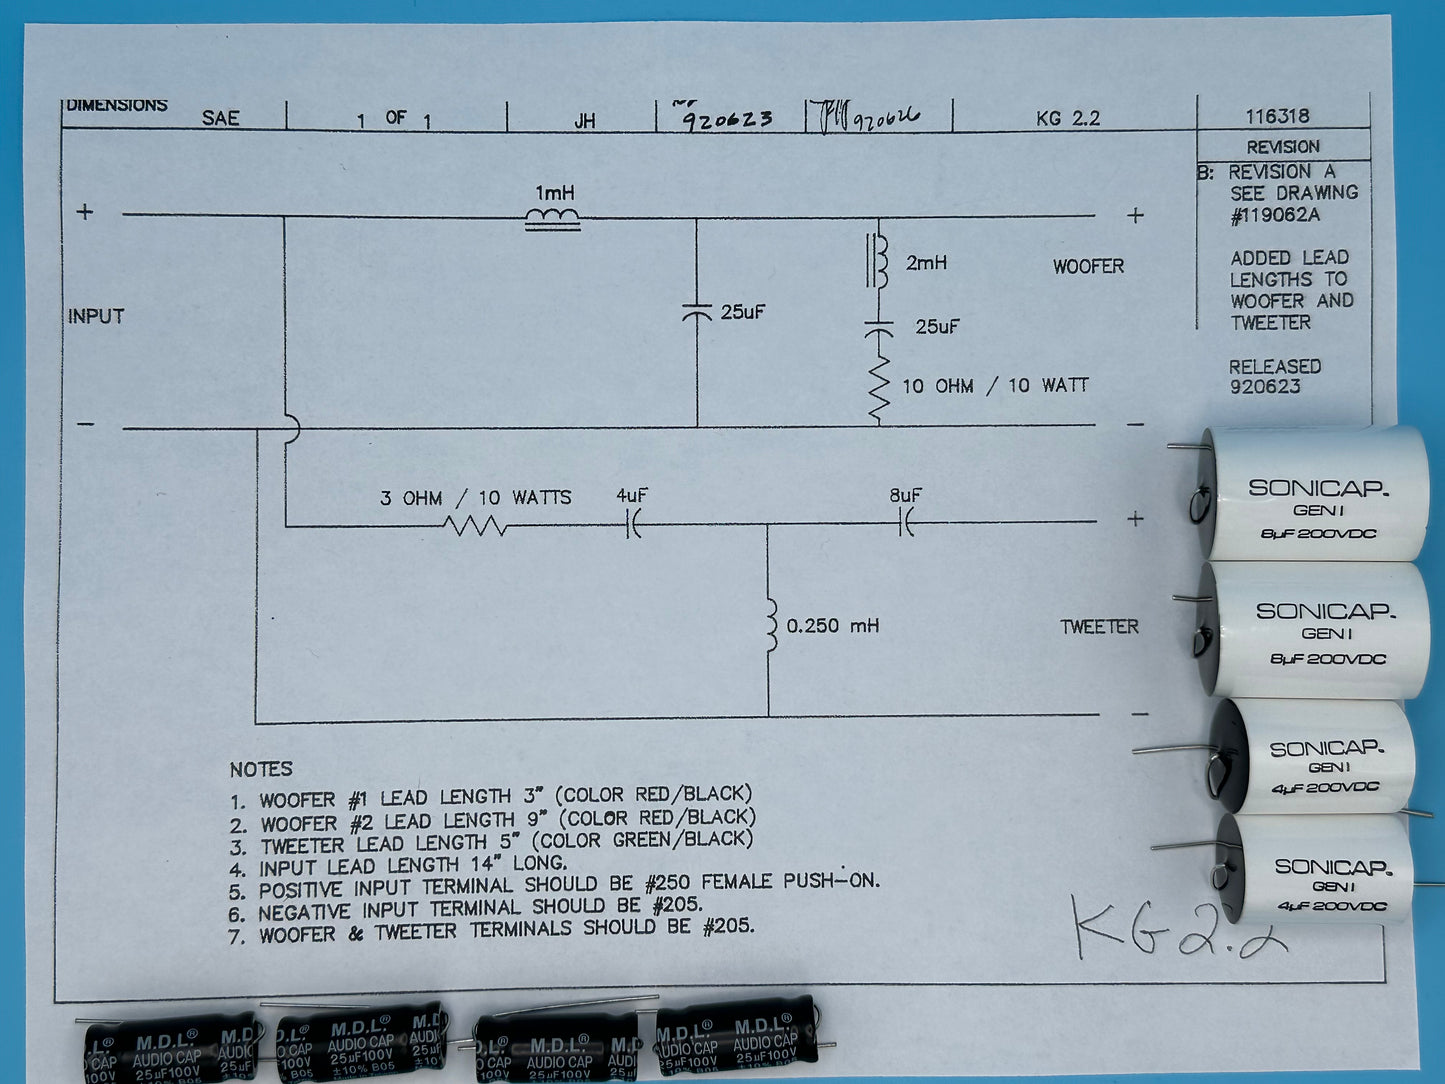 DIMENSIONS SAE 1 OF 1 JH 920623 920626 KG 2.2 116318
REVISION
B: REVISION A
SEE DRAWING
#119062A
ADDED LEAD
LENGTHS TO
WOOFER AND
TWEETER
RELEASED
920623
1mH
+ +
2mH
WOOFER
INPUT
25uF
25uF
10 OHM / 10 WATT
− −
3 OHM / 10 WATTS 4uF 8uF
+
0.250 mH
TWEETER
−
NOTES
1. WOOFER #1 LEAD LENGTH 3" (COLOR RED/BLACK)
2. WOOFER #2 LEAD LENGTH 9" (COLOR RED/BLACK)
3. TWEETER LEAD LENGTH 5" (COLOR GREEN/BLACK)
4. INPUT LEAD LENGTH 14" LONG.
5. POSITIVE INPUT TERMINAL SHOULD BE #250 FEMALE PUSH-ON.
6. NEGATIVE INPUT TERMINAL SHOULD BE #205.
7. WOOFER & TWEETER TERMINALS SHOULD BE #205.
KG 2.2
SONICAP.
GEN I
8µF 200VDC
SONICAP.
GEN I
8µF 200VDC
SONICAP.
GEN I
4µF 200VDC
SONICAP.
GEN I
4µF 200VDC
.L.® M.D.L.® M.D
CAP AUDIO CAP AUDIO
100V 25µF100V 25µF
.L.® M.D.L.® M.D
O CAP AUDIO CAP AUDI
100V 25µF100V 25µF
% B05 ±10% B05 ±10
D.L.® M.D.L.® M.D
O CAP AUDIO CAP AUDI
100V 25µF100V 25µ
M.D.L.® M.D.L.®
AUDIO CAP AUDIO CAP
25µF100V 25µF100V